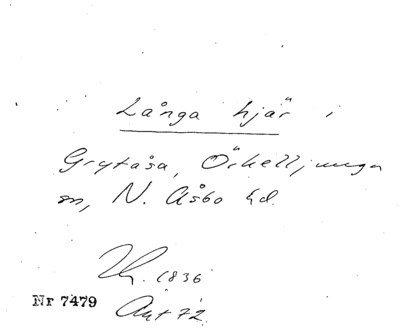 Långa hjär i
Grytåsa, Örkelljunga
sn, N. Åsbo hd.
Th. 1836
Nr 7479
Ant 72